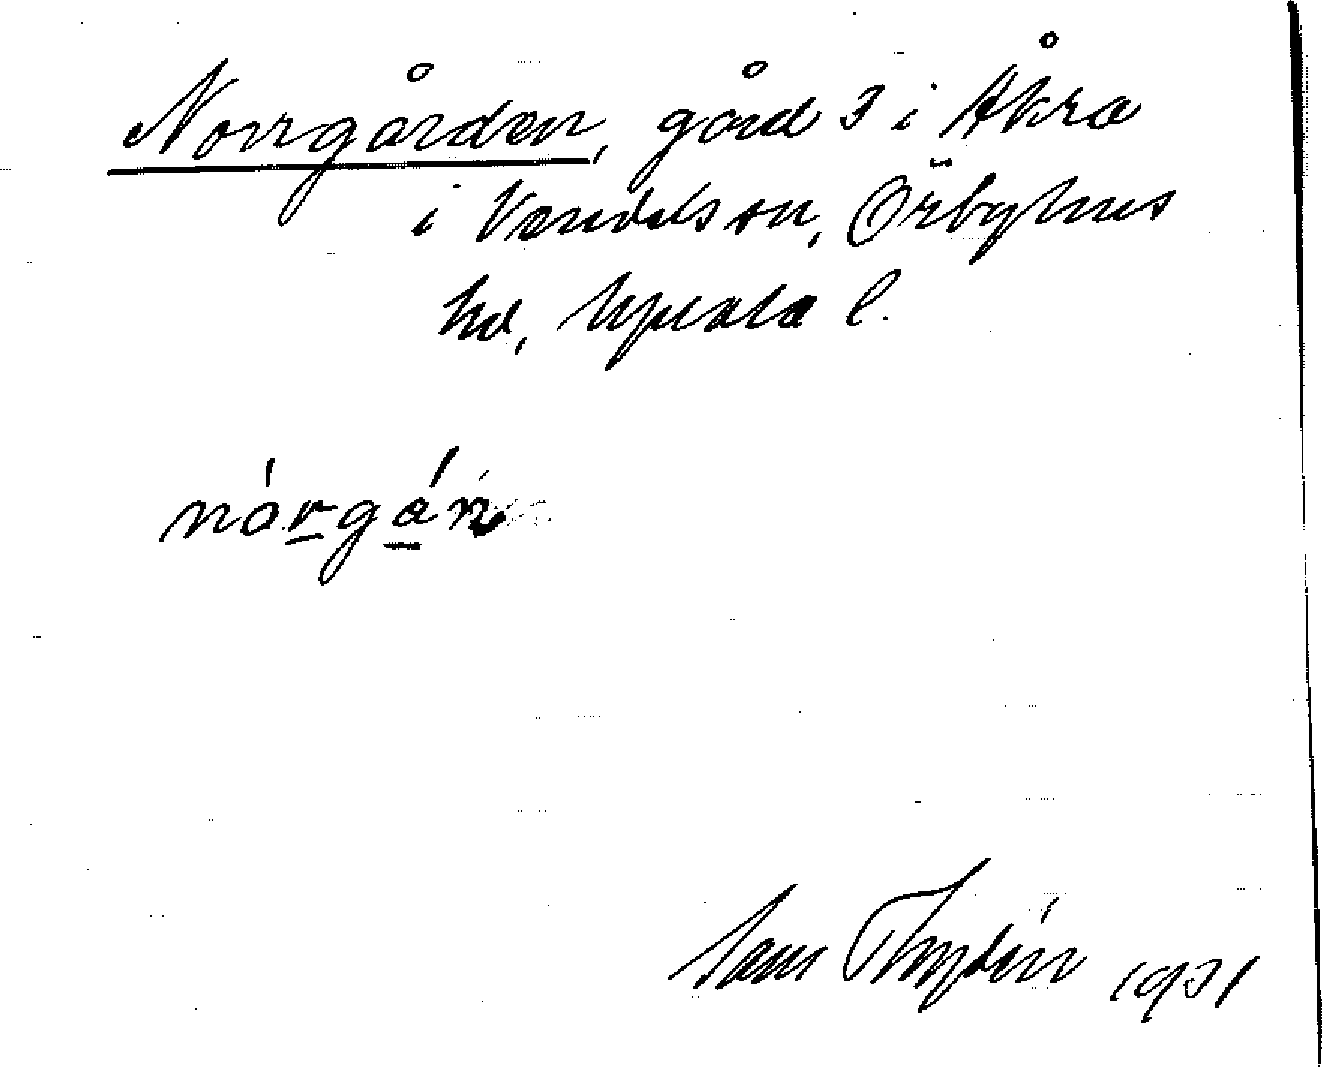 Norrgården, gård 3 i Åkra
i Vendels sn, Örbyhus
hd, Upsala l.
nórgán
1931